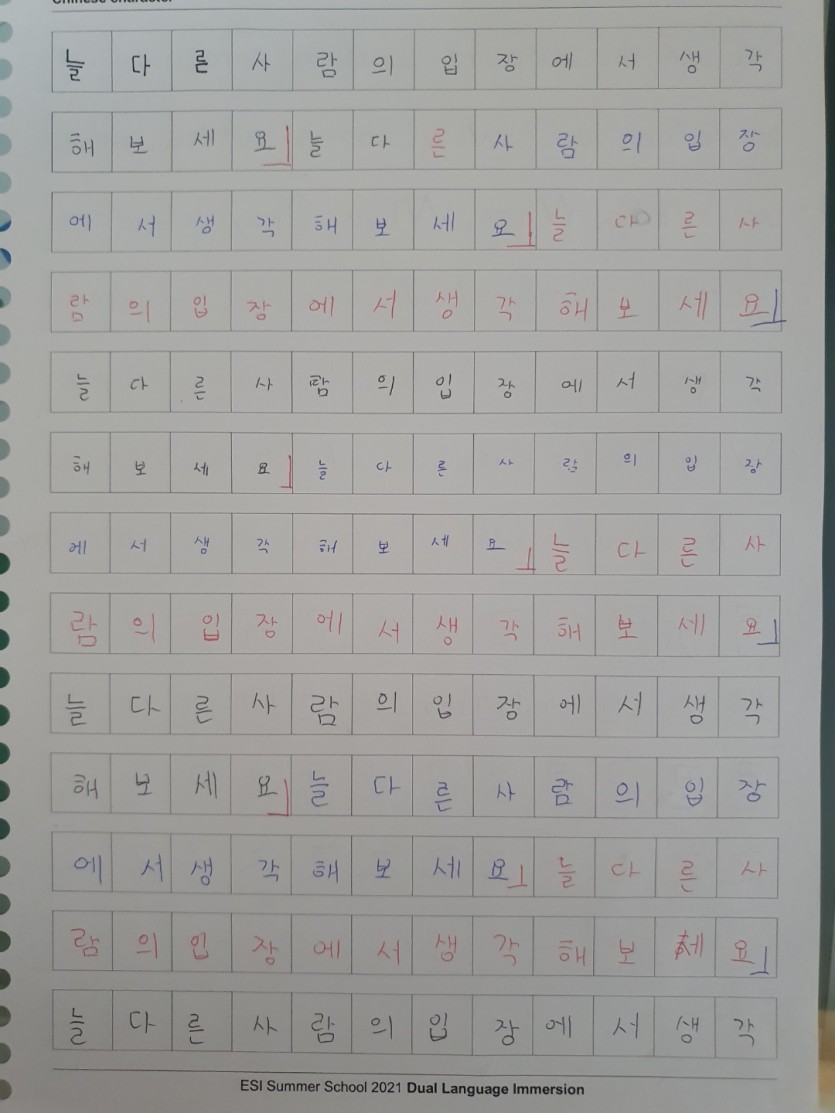 Chinese character
늘 다 른 사 람 의 입 장 에 서 생 각
해 보 세 요 늘 다 른 사 람 의 입 장
에 서 생 각 해 보 세 요 늘 다 른 사
람 의 입 장 에 서 생 각 해 보 세 요
늘 다 른 사 람 의 입 장 에 서 생 각
해 보 세 요 늘 다 른 사 람 의 입 장
에 서 생 각 해 보 세 요 늘 다 른 사
람 의 입 장 에 서 생 각 해 보 세 요
늘 다 른 사 람 의 입 장 에 서 생 각
해 보 세 요 늘 다 른 사 람 의 입 장
에 서 생 각 해 보 세 요 늘 다 른 사
람 의 입 장 에 서 생 각 해 보 세 요
늘 다 른 사 람 의 입 장 에 서 생 각
ESI Summer School 2021 Dual Language Immersion